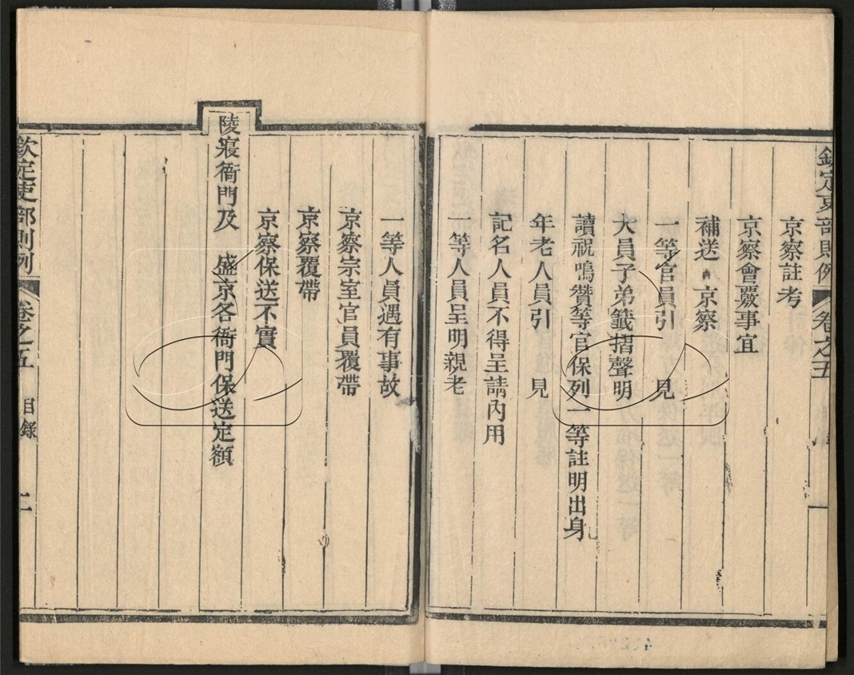 欽定吏部則例 卷之五
京察註考
京察會覈事宜
補送 京察
一等官員引 見
大員子弟籤摺聲明
讀祝鳴贊等官保列一等註明出身
年老人員引 見
記名人員不得呈請內用
一等人員呈明親老
一等人員遇有事故
京察宗室官員覆帶
京察覆帶
京察保送不實
陵寢衙門及 盛京各衙門保送定額
欽定吏部則例 卷之五 目錄 二